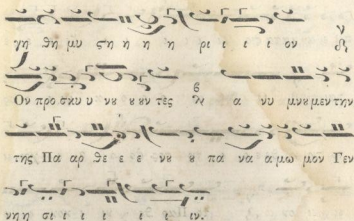 γη θη μυ ςη η η η ρι ι ι ι ον
Ον προ σκυ υ νȣ ȣ ȣν τες α νυ μνȣ μεν την
της Πα αρ θε ε ε νȣ ȣ πα να α μω μον Γεν
νη η σι ι ι ι ι ιν.